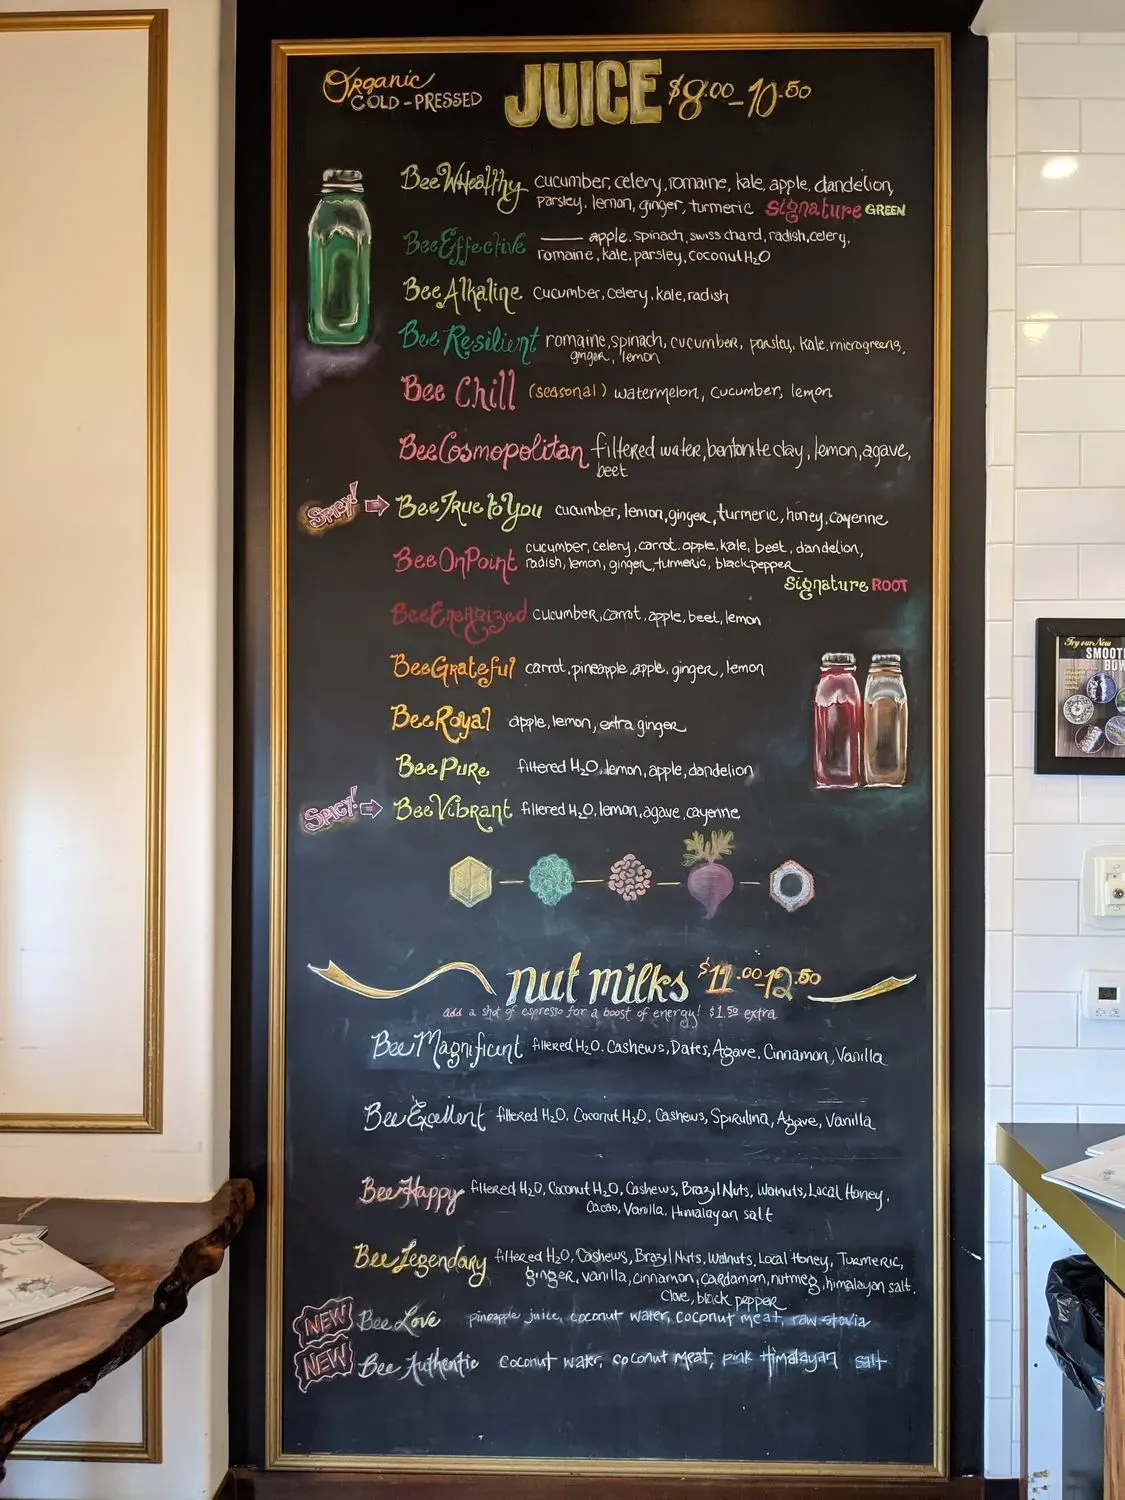 Organic
COLD-PRESSED JUICE $8.00-10.50
BeeWHealthy cucumber, celery, romaine, kale, apple, dandelion,
parsley, lemon, ginger, turmeric Signature GREEN
BeeEffective apple, spinach, swiss chard, radish, celery,
romaine, kale, parsley, coconut H2O
Bee Alkaline cucumber, celery, kale, radish
Bee Resilient romaine, spinach, cucumber, parsley, kale, microgreens,
ginger, lemon
Bee Chill (seasonal) watermelon, cucumber, lemon
BeeCosmopolitan filtered water, bentonite clay, lemon, agave,
beet
SPICY! BeeTrue to You cucumber, lemon, ginger, turmeric, honey, cayenne
BeeOnPoint cucumber, celery, carrot, apple, kale, beet, dandelion,
radish, lemon, ginger, turmeric, black pepper
Signature ROOT
BeeEnergized cucumber, carrot, apple, beet, lemon
BeeGrateful carrot, pineapple, apple, ginger, lemon
BeeRoyal apple, lemon, extra ginger
Bee Pure filtered H2O, lemon, apple, dandelion
SPICY! BeeVibrant filtered H2O, lemon, agave, cayenne
nut milks $11.00-12.50
add a shot of espresso for a boost of energy! $1.50 extra
Bee Magnificent filtered H2O, Cashews, Dates, Agave, Cinnamon, Vanilla
Bee Excellent filtered H2O, Coconut H2O, Cashews, Spirulina, Agave, Vanilla
BeeHappy filtered H2O, Coconut H2O, Cashews, Brazil Nuts, Walnuts, Local Honey,
Cacao, Vanilla, Himalayan salt
Bee Legendary filtered H2O, Cashews, Brazil Nuts, Walnuts, Local Honey, Turmeric,
ginger, vanilla, cinnamon, cardamom, nutmeg, himalayan salt,
Clove, black pepper
NEW Bee Love pineapple juice, coconut water, coconut meat, raw stevia
NEW Bee Authentic coconut water, coconut meat, pink Himalayan salt
Try our New